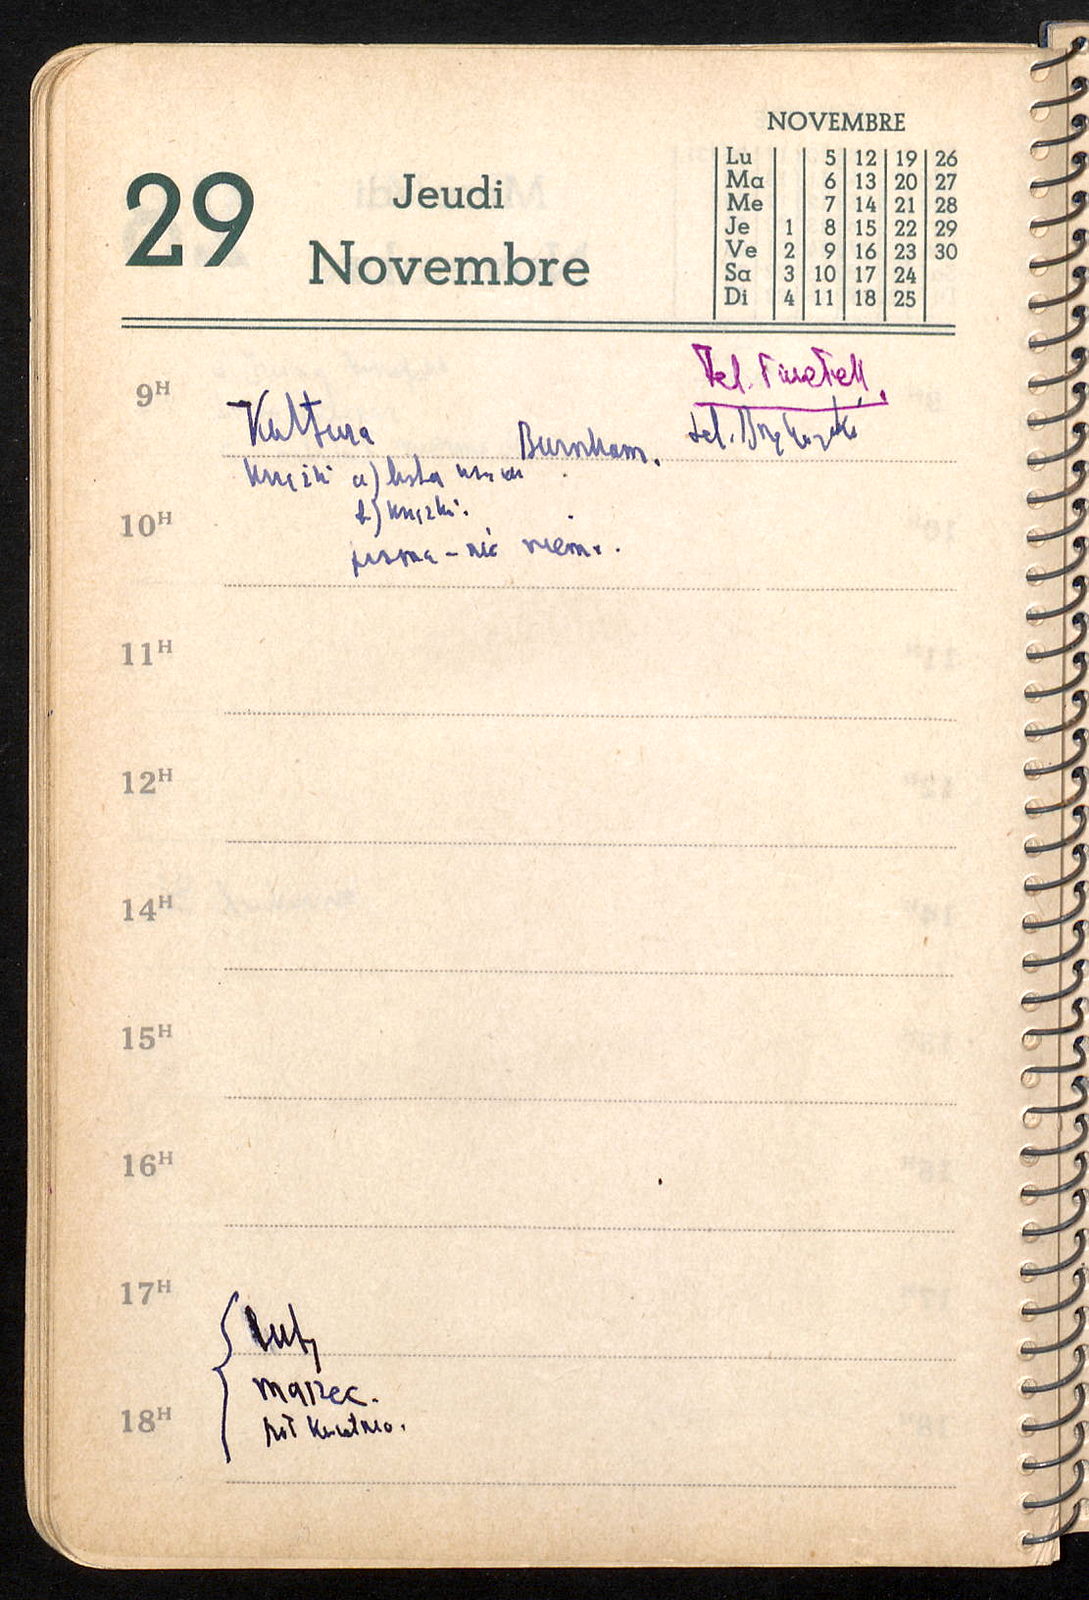 NOVEMBRE
29 Jeudi
Novembre
Lu 5 12 19 26
Ma 6 13 20 27
Me 7 14 21 28
Je 1 8 15 22 29
Ve 2 9 16 23 30
Sa 3 10 17 24
Di 4 11 18 25
Tel.
9H
Kultura Burnham. tel.
książki a) lista
10H
b) książki.
pisma – nic niema.
11H
12H
14H
15H
16H
17H
luty
marzec.
18H
pół kwietnia.